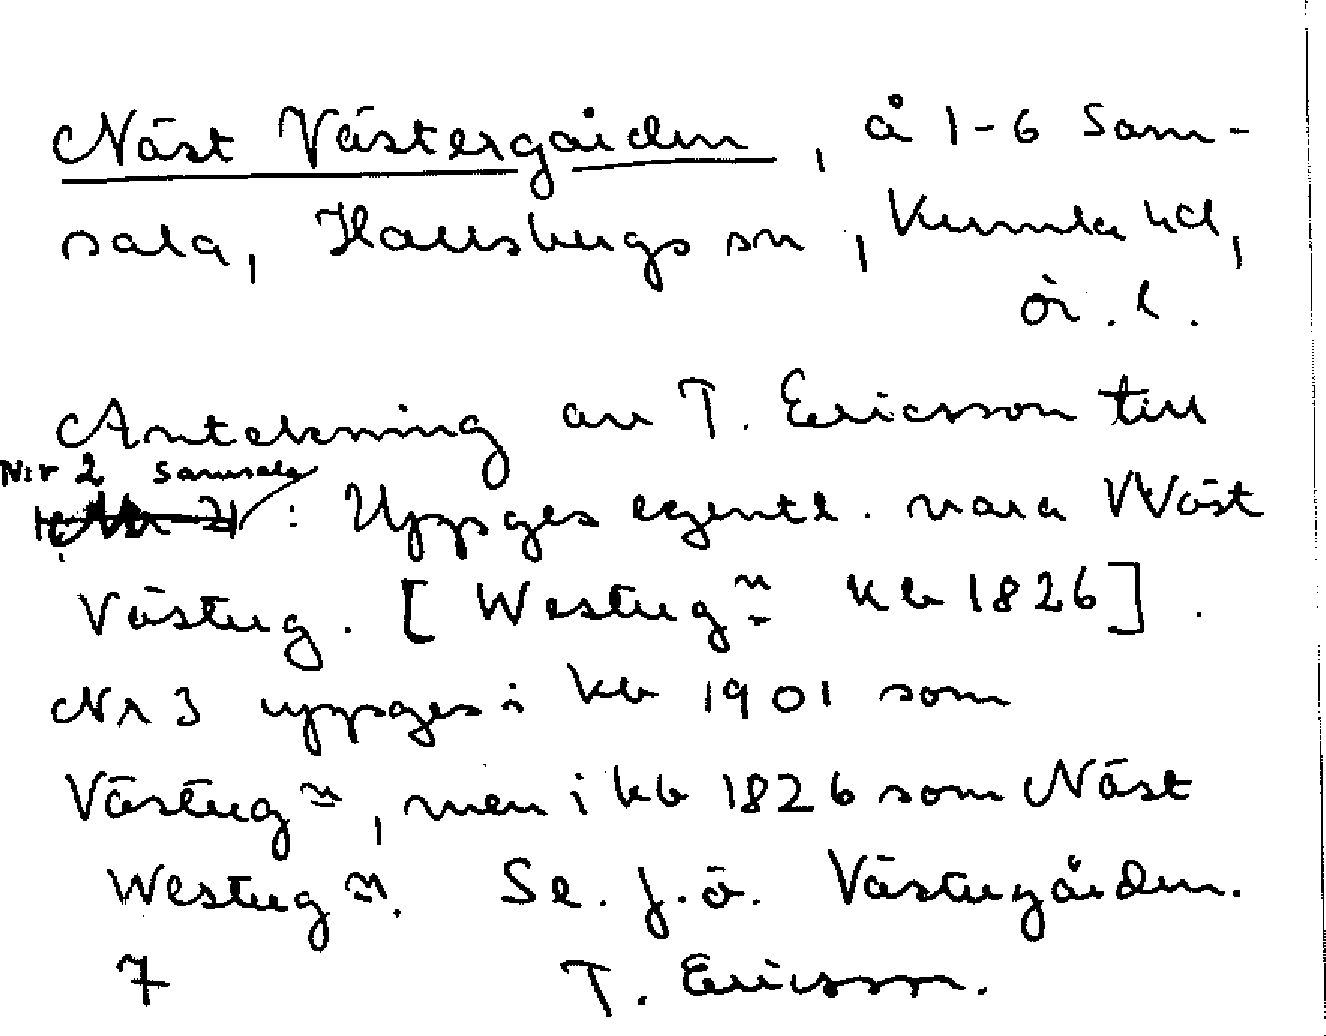 Näst Västergården, å 1-6 Sam-
sala, Hallsbergs sn, Kumla hd,
ör. l.
Anteckning av T. Ericsson till
Nir 2 Samsala
: Uppges egentl. vara Wäst
Västerg. [Westerg.n kb 1826].
Nr 3 uppges i kb 1901 som
Västerg.n, men i kb 1826 som Näst
Westerg.n. Se f.ö. Västergården.
7 T. Ericsson.